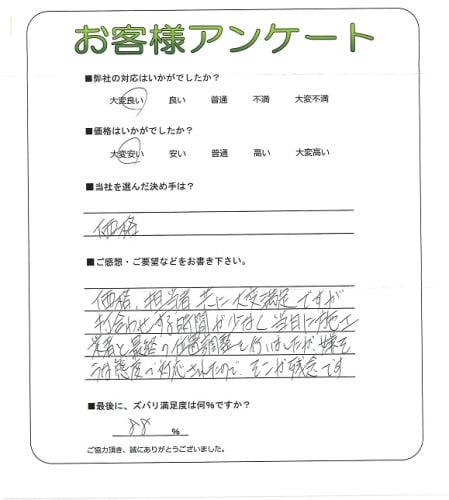 お客様アンケート
■弊社の対応はいかがでしたか？
大変良い 良い 普通 不満 大変不満
■価格はいかがでしたか？
大変安い 安い 普通 高い 大変高い
■当社を選んだ決め手は？
価格
■ご感想・ご要望などをお書き下さい。
価格、担当者 共に大変満足ですが
打合わせする時間が少なく当日に施工
業者と最終の位置調整を行いましたが、嫌そ
うな態度で対応されたので、そこが残念です
■最後に、ズバリ満足度は何%ですか？
88 %
ご協力頂き、誠にありがとうございました。